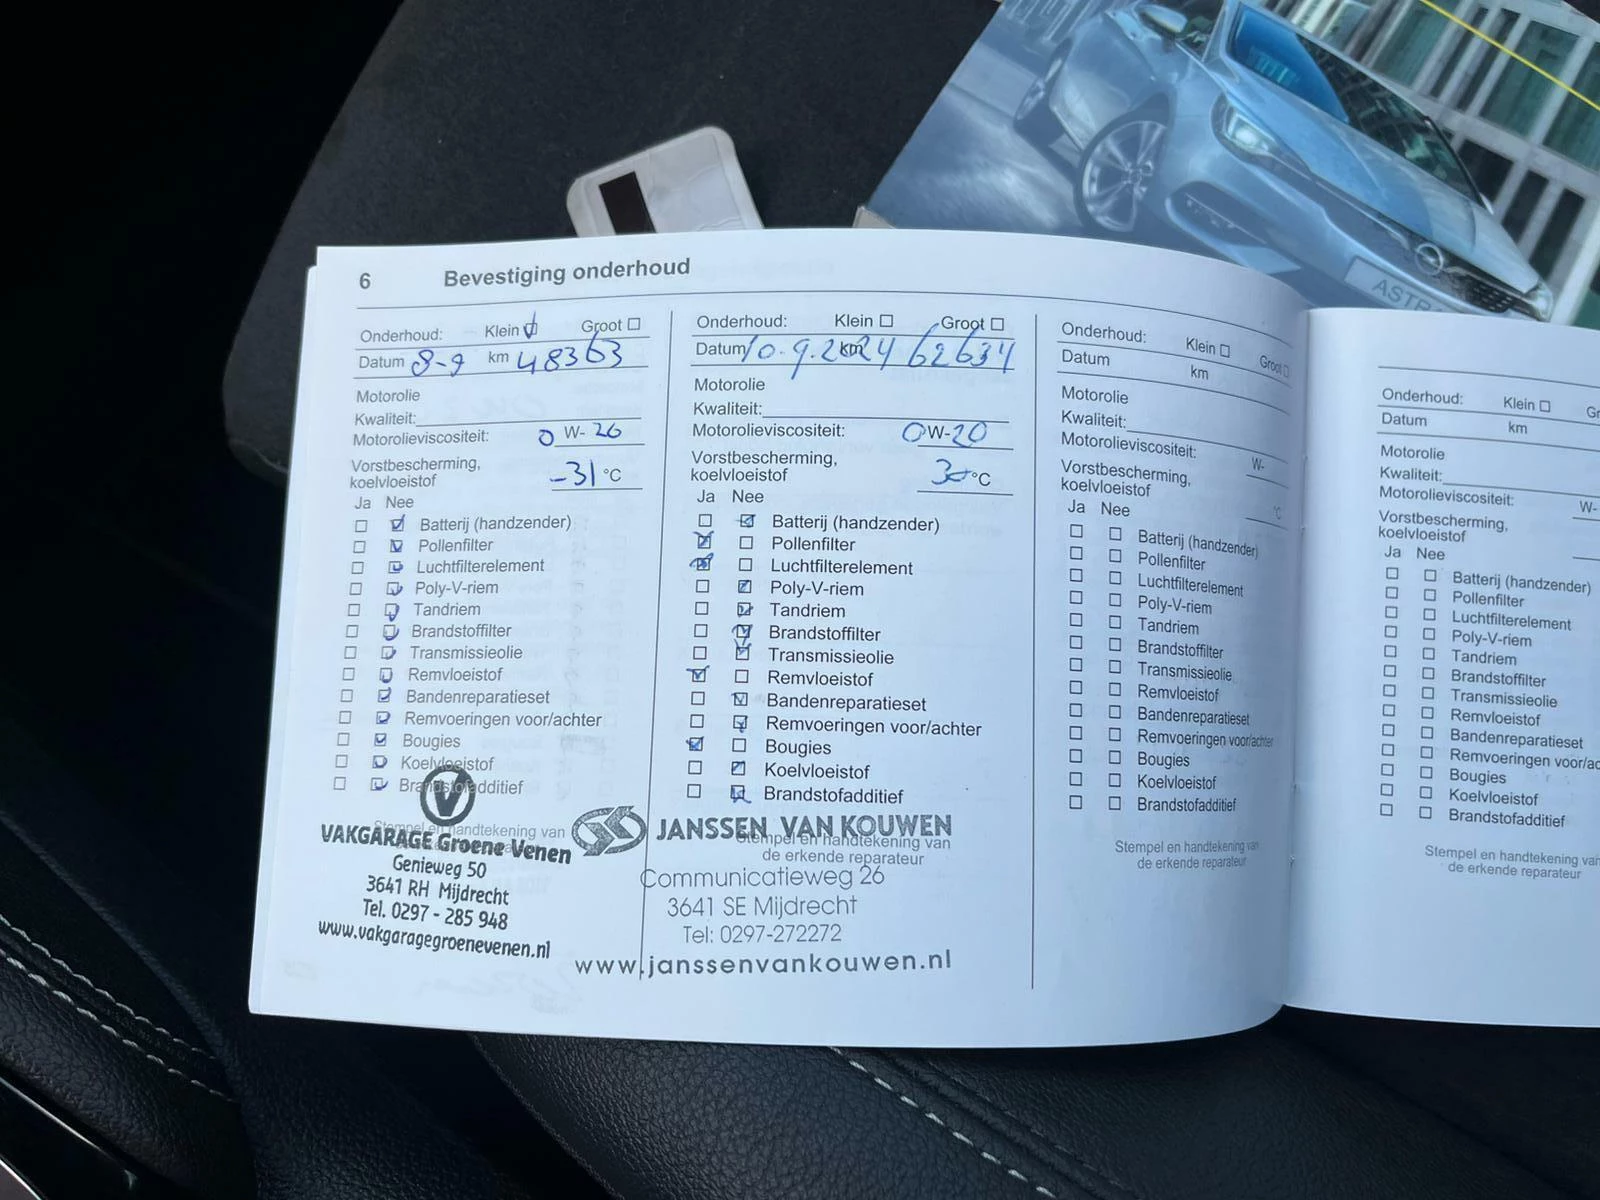 6 Bevestiging onderhoud
Onderhoud: Klein Groot
Datum 8-9 km 48363
Motorolie
Kwaliteit:
Motorolieviscositeit: 0 W- 20
Vorstbescherming,
koelvloeistof -31 °C
Ja Nee
Batterij (handzender)
Pollenfilter
Luchtfilterelement
Poly-V-riem
Tandriem
Brandstoffilter
Transmissieolie
Remvloeistof
Bandenreparatieset
Remvoeringen voor/achter
Bougies
Koelvloeistof
Brandstofadditief
Stempel en handtekening van
VAKGARAGE Groene Venen
Genieweg 50
3641 RH Mijdrecht
Tel. 0297 - 285 948
www.vakgaragegroenevenen.nl
Onderhoud: Klein Groot
Datum 10.9.2024 km 62634
Motorolie
Kwaliteit:
Motorolieviscositeit: 0 W- 20
Vorstbescherming,
koelvloeistof 30 °C
Ja Nee
Batterij (handzender)
Pollenfilter
Luchtfilterelement
Poly-V-riem
Tandriem
Brandstoffilter
Transmissieolie
Remvloeistof
Bandenreparatieset
Remvoeringen voor/achter
Bougies
Koelvloeistof
Brandstofadditief
JANSSEN VAN KOUWEN
Stempel en handtekening van
de erkende reparateur
Communicatieweg 26
3641 SE Mijdrecht
Tel: 0297-272272
www.janssenvankouwen.nl
Onderhoud: Klein Groot
Datum km
Motorolie
Kwaliteit:
Motorolieviscositeit: W-
Vorstbescherming,
koelvloeistof °C
Ja Nee
Batterij (handzender)
Pollenfilter
Luchtfilterelement
Poly-V-riem
Tandriem
Brandstoffilter
Transmissieolie
Remvloeistof
Bandenreparatieset
Remvoeringen voor/achter
Bougies
Koelvloeistof
Brandstofadditief
Stempel en handtekening van
de erkende reparateur
Onderhoud: Klein
Datum km
Motorolie
Kwaliteit:
Motorolieviscositeit: W-
Vorstbescherming,
koelvloeistof
Ja Nee
Batterij (handzender)
Pollenfilter
Luchtfilterelement
Poly-V-riem
Tandriem
Brandstoffilter
Transmissieolie
Remvloeistof
Bandenreparatieset
Remvoeringen voor/ac
Bougies
Koelvloeistof
Brandstofadditief
Stempel en handtekening van
de erkende reparateur
ASTR